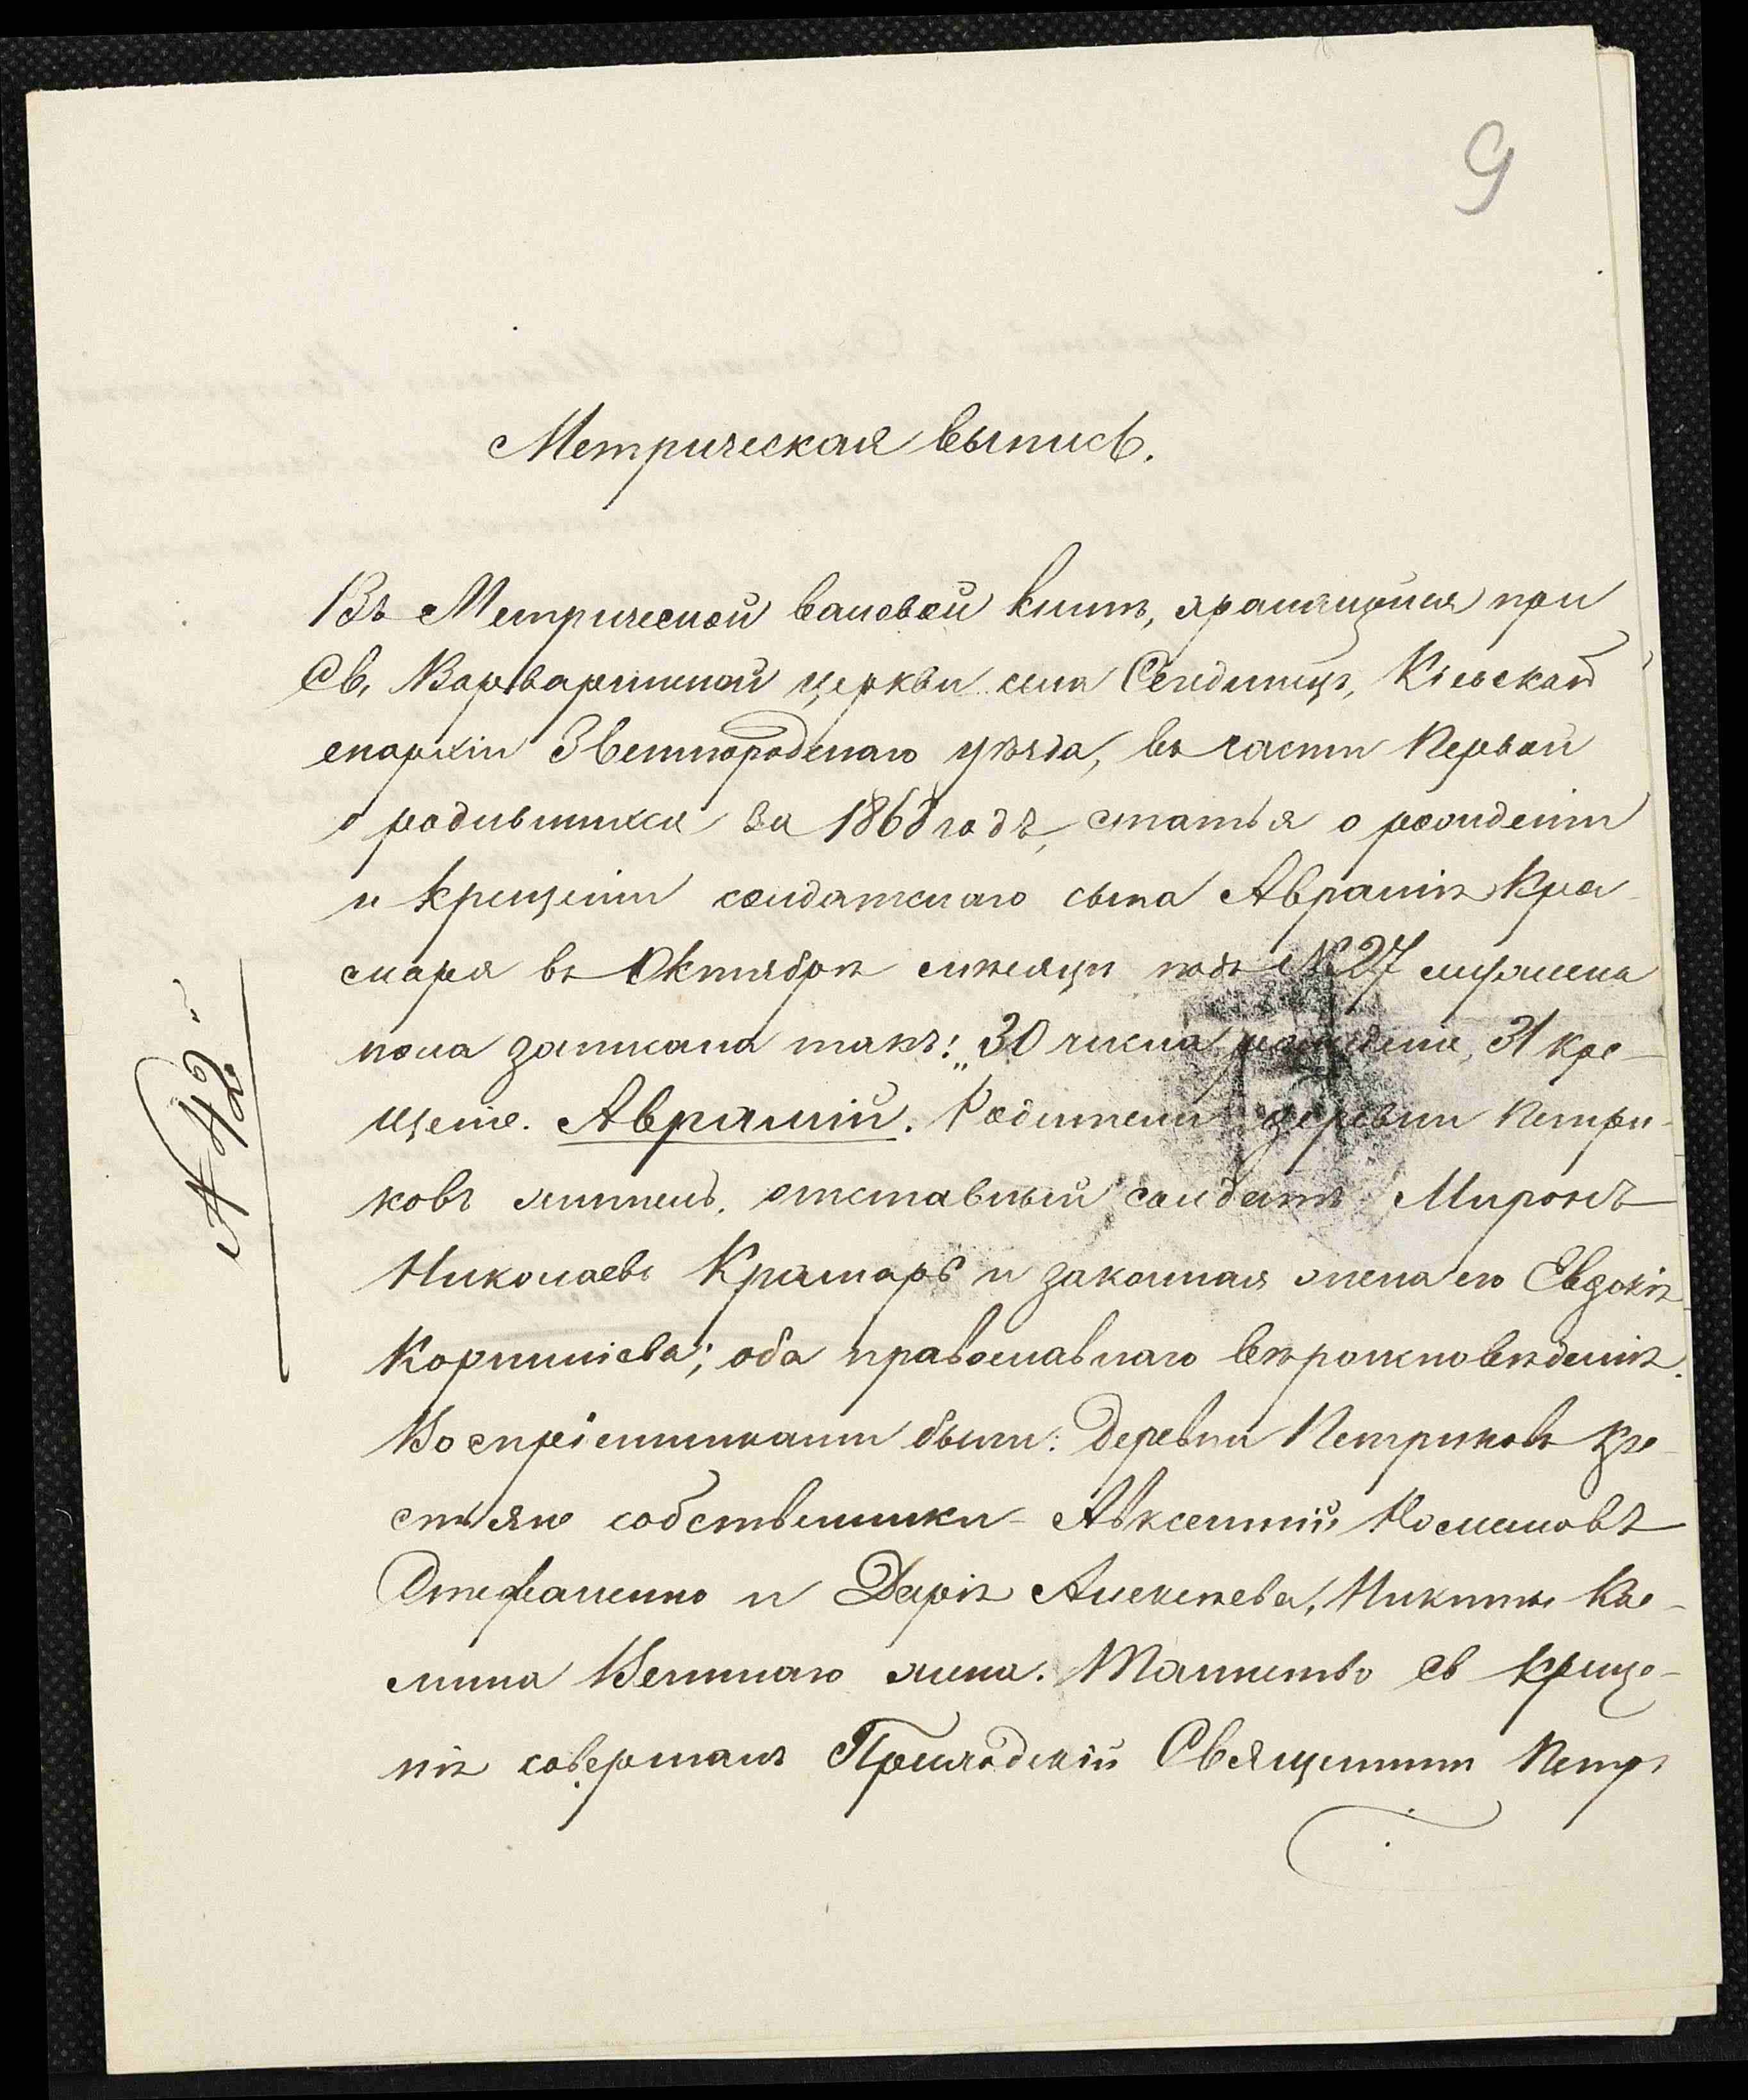 9
Метрическая выпись.
Въ Метрической валовой книгѣ, хранящейся при
Св. Варваринской церкви села Сегединецъ, Кіевской
епархіи Звенигородскаго уѣзда, въ части первой
о родившихся за 1868 годъ, статья о рожденіи
и крещеніи солдатскаго сына Аврамія Кра-
маря въ Октябрѣ мѣсяцѣ подъ № 27 мужеска
пола записана такъ: „30 числа рожденіе, 31 кре-
щеніе. Аврамій. Родители деревни Петри-
ковъ житель, отставный солдатъ Миронъ
Николаевъ Крамарь и законная жена его Евдокія
Корниліева; оба православнаго вѣроисповѣданія.
Воспріемниками были: деревни Петриковъ кре-
стьяне собственники Авксентій Космановъ
Стефаненко и Дарія Алексѣева, Никиты Ко-
мина Великаго жена. Таинство св креще-
нія совершалъ Приходскій Священникъ Петръ
№ 42